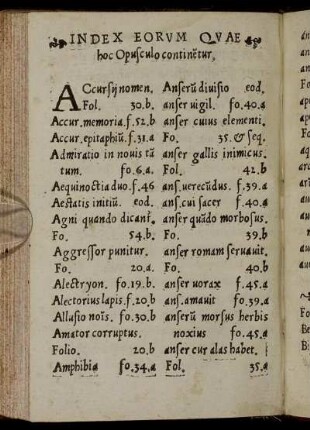 INDEX EORVM QVAE
hoc Opusculo continẽtur,
ACcursij nomen,
Fol. 30.b.
Accur. memoria.f.52.b
Accur. epitaphiũ.f.31.a
Admiratio in nouis tã
tum. fo.6.a.
Aequinoctia duo.f.46
Aestatis initiũ. eod.
Agni quando dicant.
Fo. 54.b.
Aggressor punitur.
Fo. 20.a.
Alectryon. fo.19.b.
Alectorius lapis.f.20.b
Allasio nois. fo.30.b
Amator corruptus.
Folio. 20.b
Amphibia fo.34.a
Anserũ diuisio eod.
anser uigil. fo.40.a
anser cuius elementi.
Fo. 35.& seq.
anser gallis inimicus.
Fol. 42.b
ans.uerecũdus. f.39.a
ans.cui sacer f.40.a
anser quãdo morbosus.
Fo. 39.b
anser romam seruauit.
Fo. 40.b
anser uorax f.45.a
ans.amauit fo.39.a
anserũ morsus herbis
noxius fo.45.a
anser cur alas habet.
Fol. 35.a